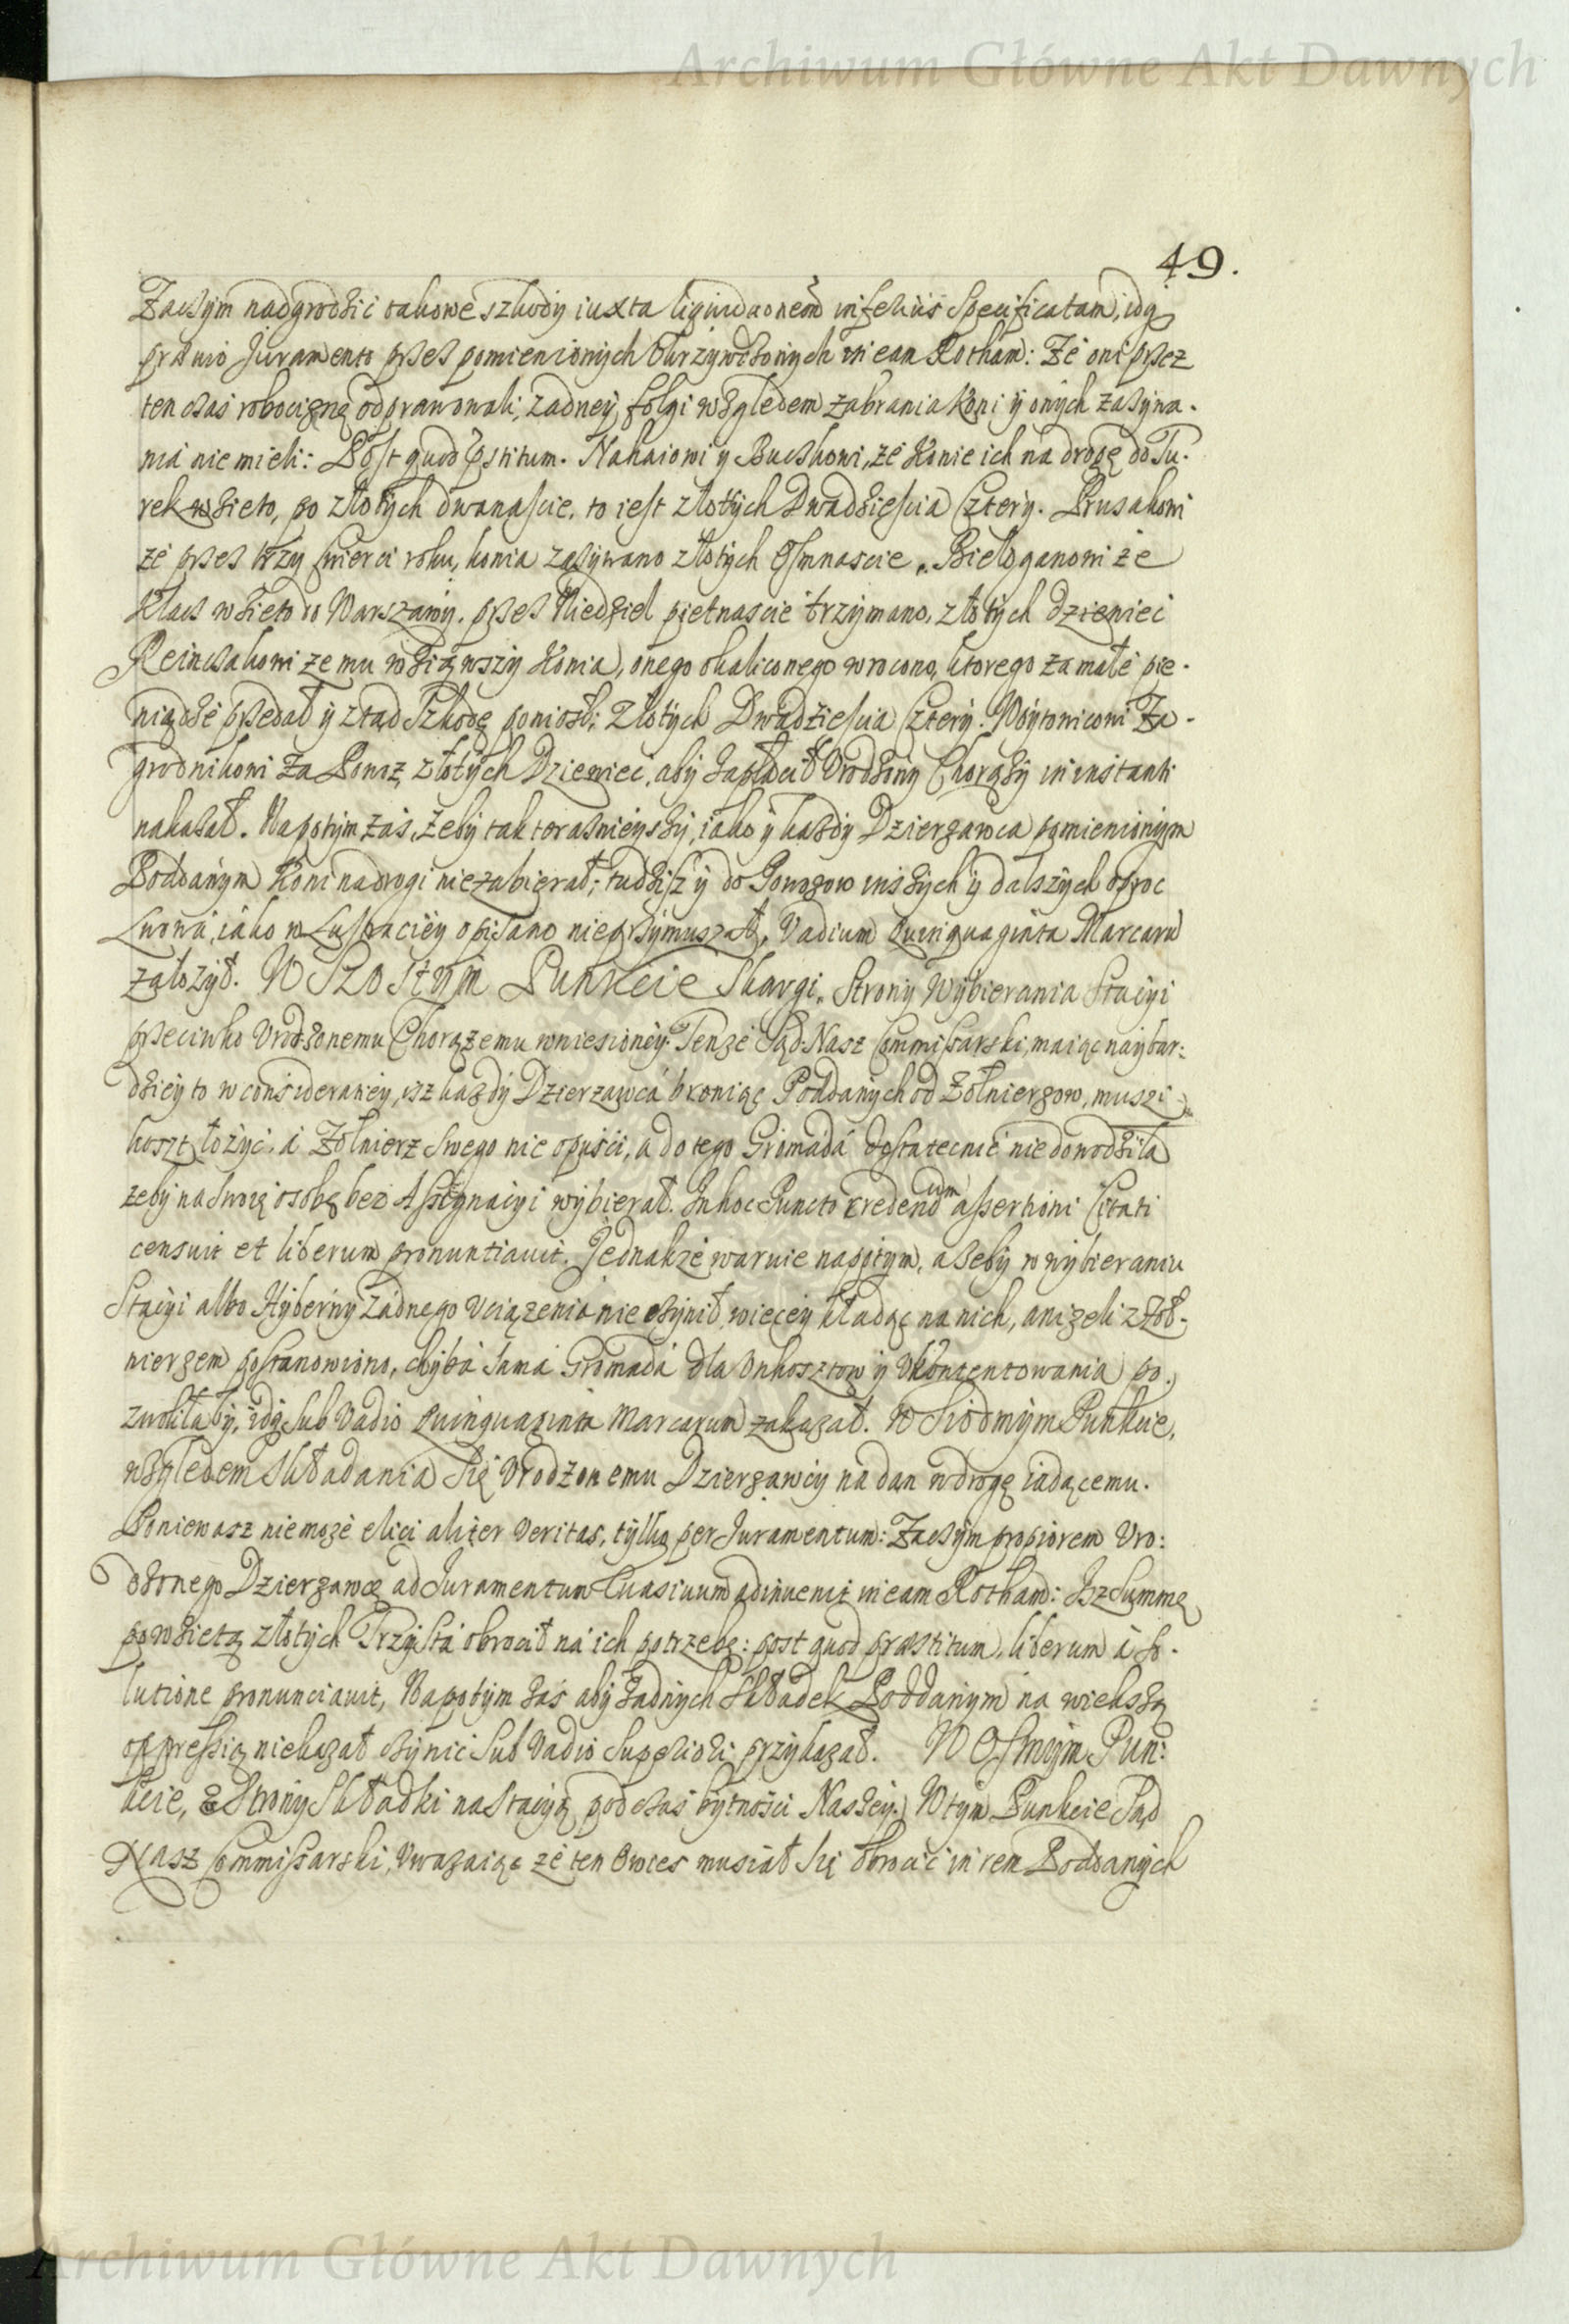 Archiwum Główne Akt Dawnych
49.
Zaczym nadgrodzić takowe szkody iuxta liquidaonem inferius Specificatam, idq
prævio Juramento przez pomienionych Ukrzywdzonych in eam Rotham: Że oni przez
ten czas robociznę odprawowali, żadney folgi względem zabrania Koni y onych zażywa-
nia nie mieli: Post quod pstitum. Nahaiowi y Buczkowi, że Konie ich na drogę do Tu-
rek wzięto, po złotych dwanaście, to iest złotych Dwadzieścia Cztery. Prusakowi
że przez trzy ćwierci roku, konia zażywano złotych Osmnaście. Bieloganowi że
Klacz wzięto do Warszawy, przez Niedziel piętnaście trzymano, złotych dziewięć
Reinczakowi że mu wziąwszy Konia, onego okaliconego wrocono, ktorego za małe pie-
niądze przedał y ztąd Szkodę poniosł; Złotych Dwadzieścia Cztery. Woytowicowi Za-
grodnikowi za Powoz, złotych Dziewięć, aby zapłacił Vrodzony Chorąży in instanti
nakazał. Napotym zaś, żeby tak teraznieyszy, iako y każdy Dzierzawca pomienionym
Poddanym Koni na drogi nie zabierał, tudzisz y do Powozow inszych y dalszych oproc
Lwowa, iako w Lustraciey opisano nieprzymuszał, Vadium Quinquaginta Marcarum
założył. W Szostym Punkcie Skargi, Strony Wybierania Stacyi
przeciwko Vrodzonemu Chorążemu wniesioney. Tenże Sąd Nasz Commissarski, maiąc naybar-
dziey to w consideraciey, isz każdy Dzierzawca broniąc Poddanych od Żołnierzow, muszi
koszt łożyć, a Żołnierz swego nie opuści, a do tego Gromada dostatecznie nie dowodziła
żeby na swoię osobę bez Assygnacyi wybierał. In hoc Puncto credendum assertioni Citati
censuit et liberum pronuntiavit. Jednakże waruie napotym, ażeby w wybieraniu
Stacyi albo Hyberny żadnego Vciążenia nie czynił, więcey kładąc na nich, aniżeli z Żoł-
nierzem postanowiono, chyba sama Gromada dla Vnkosztow y Vkontentowania po-
zwoliłaby, idq Sub Vadio Quinquaginta Marcarum zakazał. W Siodmym Punkcie,
względem Składania się Vrodzonemu Dzierzawcy na dan w drogę iadącemu.
Poniewasz nie może elici aliter Veritas, tylko per Juramentum: Zaczym propiorem Vro:
dzonego Dzierzawcę ad Juramentum Evasivum adinvenit in eam Rotham: Isz Summę
powziętą złotych Trzysta obrocił na ich potrzebę: post quod præstitum, liberum à so-
lutione pronunciavit, Napotym zaś aby żadnych składek Poddanym na większą
oppressią niekazał czynić Sub Vadio Superiori przykazał. W Osmym Pun:
kcie, Strony Składki na Stacyą podczas bytności Naszey. W tym Punkcie Sąd
Nasz Commissarski, Vważaiąc że ten Owies musiał się obrocić in rem Poddanych
Archiwum Główne Akt Dawnych